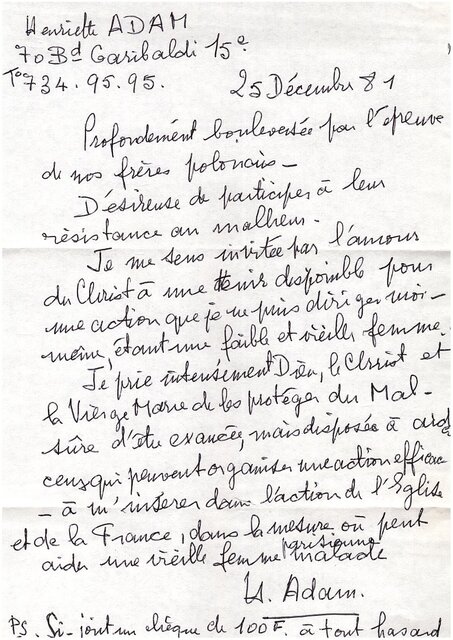 Henriette ADAM
70 Bd Garibaldi 15e
To 734.95.95.
25 Décembre 81
Profondément bouleversée par l'épreuve
de nos frères polonais –
Désireuse de participer à leur
résistance au malheur.
Je me sens invitée par l'amour
du Christ à me tenir disponible pour
une action que je ne puis diriger moi-
même, étant une faible et vieille femme.
Je prie intensement Dieu, le Christ et
la Vierge Marie de les protéger du Mal –
sûre d'être exaucée, mais disposée à aider
ceux qui peuvent organiser une action efficace
– à m'insérer dans l'action de l'Église
et de la France, dans la mesure où peut
aider une vieille femme parisienne malade
H. Adam.
P.S. Si-joint un chèque de 100F à tout hasard